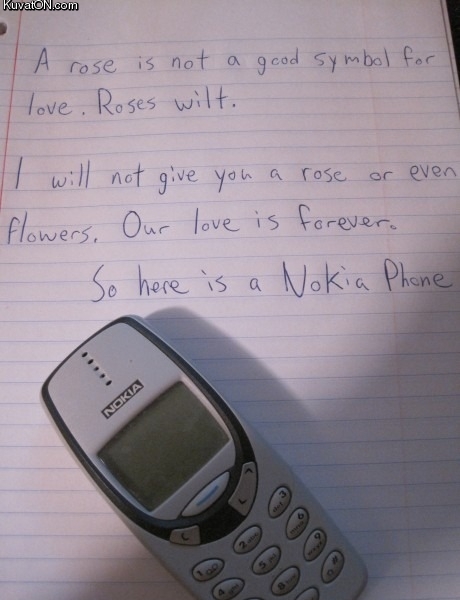 KuvatON.com
A rose is not a good symbol for
love. Roses wilt.
I will not give you a rose or even
flowers. Our love is forever.
So here is a Nokia Phone
NOKIA
C
1
2
3
4
5
6
8
9